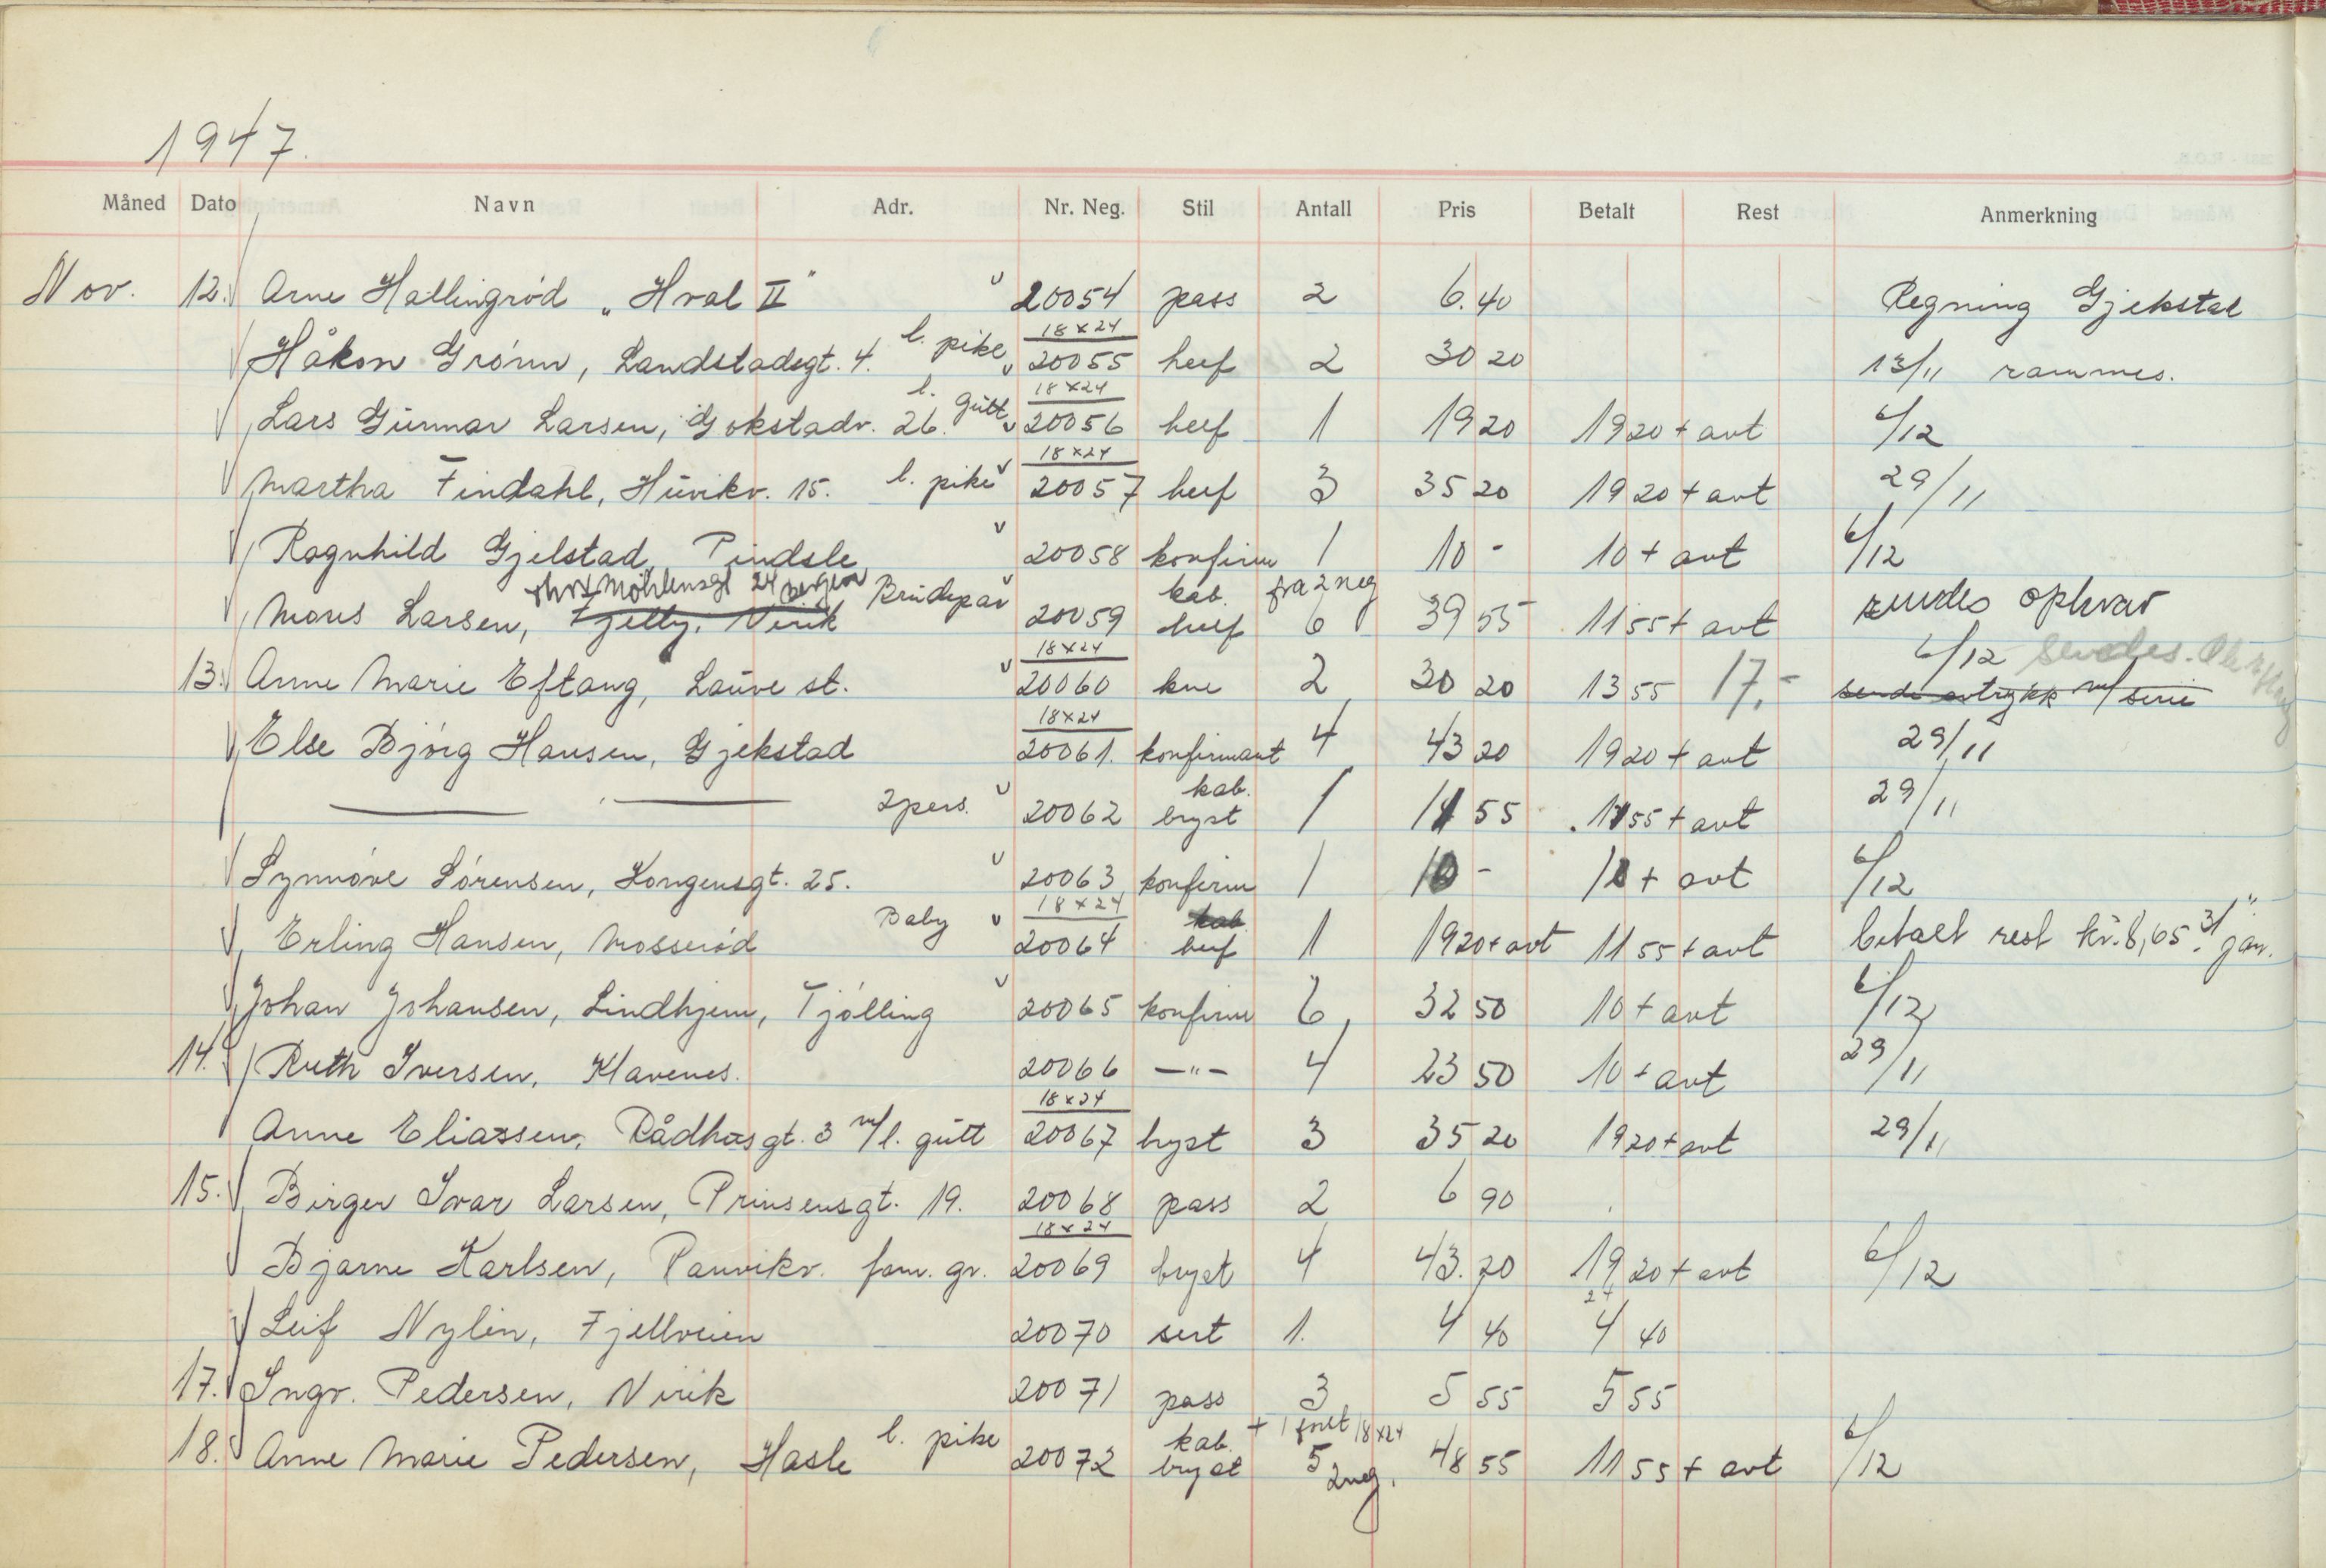 1947.
Måned Dato Navn Adr. Nr. Neg. Stil Antall Pris Betalt Rest Anmerkning
Nov. 12. Arne Hallingrød „Hval II" 20054 pass 2 6.40 Regning Gjekstad
18x24
Håkon Grönn, Landstadsgt. 4. l. pike 20055 heef 2 30 20 13/11 rammes.
18x24
Lars Gunnar Larsen, Gokstadv. 26. l. gutt 20056 heef 1 19 20 19 20 + avt 6/12
18x24
Martha Findahl, Huvikv. 15. l. pike 20057 heef 3 35 20 19 20 + avt 29/11
Ragnhild Gjelstad, Pindsle 20058 konfirm 1 10 - 10 + avt 6/12
Möhlensgt 24 Bergen Brudepar kab. fra 2 neg
Mons Larsen, Fjellv. Virik 20059 heef 6 39 55 11 55 + avt sendes opkrav
18x24 6/12 sendes.
13. Anne Marie Eftang, Lauve st. 20060 kne 2 30 20 13 55 17,- sende avtrykk m/ serie
18x24
Else Bjørg Hansen, Gjekstad 20061. konfirmant 4 43 20 19 20 + avt 29/11
— " — 2 pers. 20062 kab. bryst 1 11 55 11 55 + avt 29/11
Synnöve Sörensen, Kongensgt. 25. 20063 konfirm 1 10 - 10 + avt 6/12
18x24 kab.
Erling Hansen, Mosserød Baby 20064 heef 1 19 20 + avt 11 55 + avt betalt rest kr. 8,65 31/ jan.
Johan Johansen, Lindhjem, Tjölling 20065 konfirm 6 32 50 10 + avt 6/12
14. Ruth Iversen, Klavenes. 20066 —"— 4 23 50 10 + avt 29/11
18x24
Anne Eliassen, Rådhusgt. 3 m/l. gutt 20067 bryst 3 35 20 19 20 + avt 29/11
15. Birger Ivar Larsen, Prinsensgt. 19. 20068 pass 2 6 90
18x24
Bjarne Karlsen, Ranvikv. fam. gr. 20069 bryst 4 43.20 19 20 + avt 6/12
Leif Nylin, Fjellveien 20070 sert 1. 4 40 4 40
17. Ingv. Pedersen, Virik 20071 pass 3 5 55 5 55
kab. + 1 18x24
18. Anne Marie Pedersen, Hasle l. pike 20072 bryst 5 2 neg. 48 55 11 55 + avt 6/12